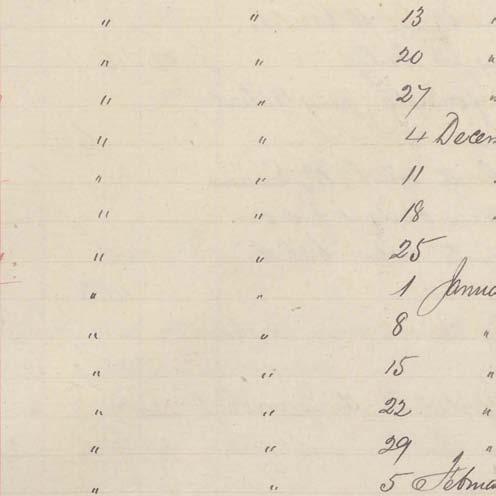 " " 13 "
" " 20 "
" " 27 "
" " 4 Decem
" " 11
" " 18 "
" " 25
" " 1 Janua
" " 8 "
" " 15 "
" " 22 "
" " 29 "
" " 5 Februa